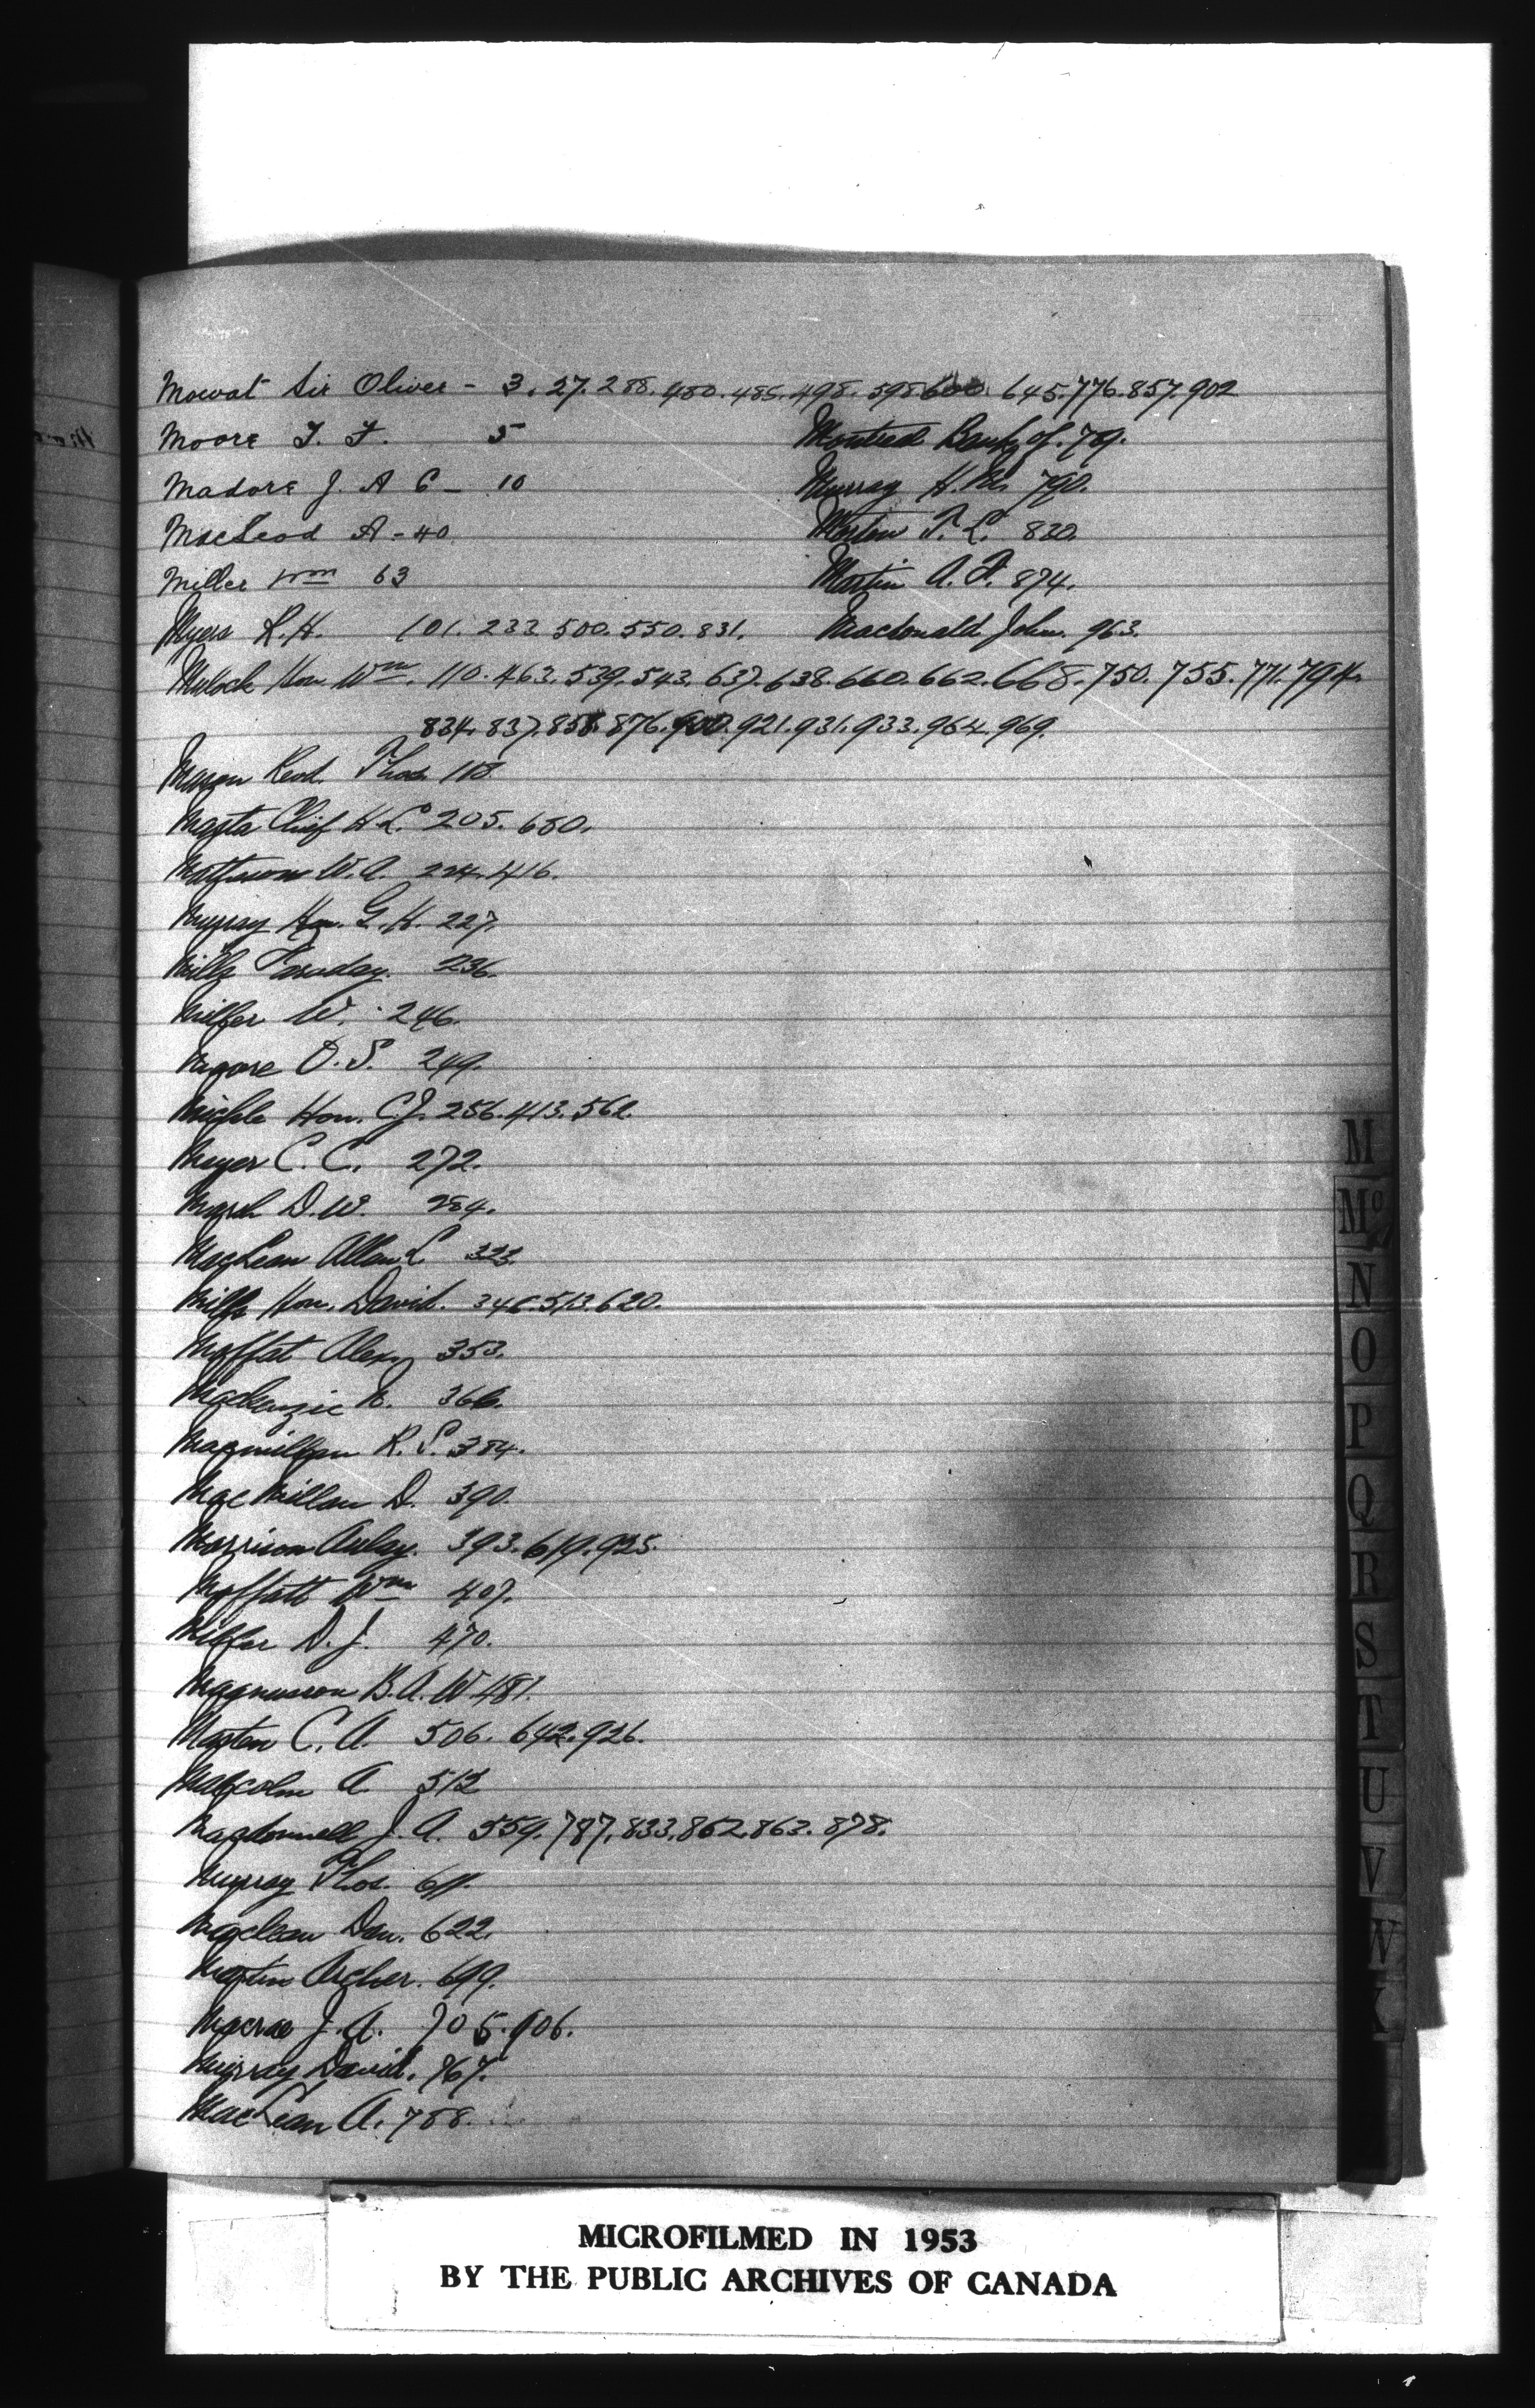 Mowat Sir Oliver - 3. 27. 288. 480. 485. 498. 598 600. 645. 776. 857. 902
Moore T. F. 5
Madore J. A C - 10
MacLeod A - 40
Miller Wm 63
Myers R. H. 101. 233. 500. 550. 831.
Montreal Bank of. 79.
Murray H. M. 790.
Morton T. L. 830.
Martin A. F. 874.
Macdonald John. 963.
Mulock Hon Wm. 110. 463. 539. 543. 637. 638. 660. 662. 668. 750. 755. 771. 794.
834. 837. 858. 876. 900. 921. 931. 933. 964. 969.
Mason Revd. Thos. 118.
Masta Chief H. L. 205. 680.
W. A. 224. 416.
Murray Hon. G. H. 227.
Mills Faraday. 236.
Miller W. 246.
Moore O. S. 249.
Hon. C. J. 256. 413. 562.
Meyer C. C. 272.
Marsh D. W. 284.
MacLean Allan L 323.
Mills Hon. David. 346. 513. 620.
Moffat Alex. 353.
Mackenzie N. 366.
Macmillan R. S. 384.
MacMillan D. 390.
Morrison Aulay. 393. 619. 925.
Moffatt Wm 407.
Miller D. J. 470.
Magnusson B. A. W. 481.
Masten C. A. 506. 642. 926.
Malcolm A. 512
Macdonnell J. A. 559. 787. 833. 862. 863. 878.
Murray Thos. 611.
Maclean Dan. 622.
Martin Archer. 699.
Macrae J. A. 705. 906.
Murray David. 767.
MacLean A. 788.
M
Mc
N
O
P
Q
R
S
T
U
V
W
MICROFILMED IN 1953
BY THE PUBLIC ARCHIVES OF CANADA